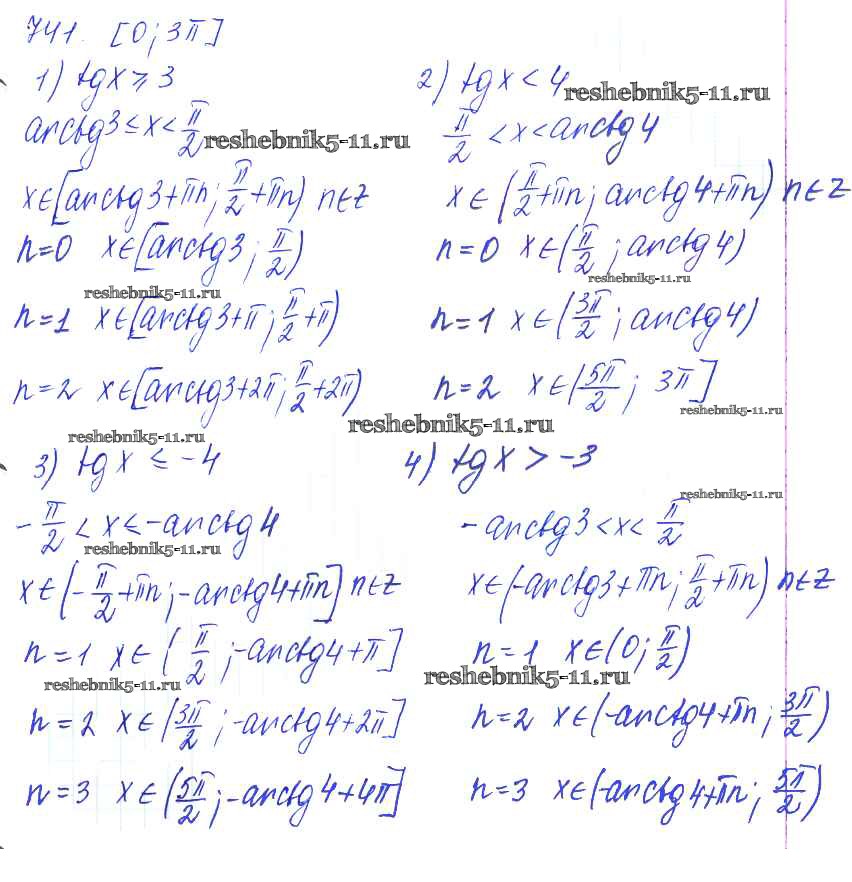 741. [0; 3π]
1) tgx ≥ 3
arctg3 ≤ x < π/2
x∈[arctg3+πn; π/2+πn) n∈Z
n=0 x∈[arctg3; π/2)
n=1 x∈[arctg3+π; π/2+π)
n=2 x∈[arctg3+2π; π/2+2π)
2) tgx < 4
π/2 < x < arctg4
x∈(π/2+πn; arctg4+πn) n∈Z
n=0 x∈(π/2; arctg4)
n=1 x∈(3π/2; arctg4)
n=2 x∈(5π/2; 3π]
3) tgx ≤ -4
-π/2 < x ≤ -arctg4
x∈(-π/2+πn; -arctg4+πn] n∈Z
n=1 x∈(π/2; -arctg4+π]
n=2 x∈(3π/2; -arctg4+2π]
n=3 x∈(5π/2; -arctg4+4π]
4) tgx > -3
-arctg3 < x < π/2
x∈(-arctg3+πn; π/2+πn) n∈Z
n=1 x∈(0; π/2)
n=2 x∈(-arctg4+πn; 3π/2)
n=3 x∈(-arctg4+πn; 5π/2)
reshebnik5-11.ru
reshebnik5-11.ru
reshebnik5-11.ru
reshebnik5-11.ru
reshebnik5-11.ru
reshebnik5-11.ru
reshebnik5-11.ru
reshebnik5-11.ru
reshebnik5-11.ru
reshebnik5-11.ru
reshebnik5-11.ru